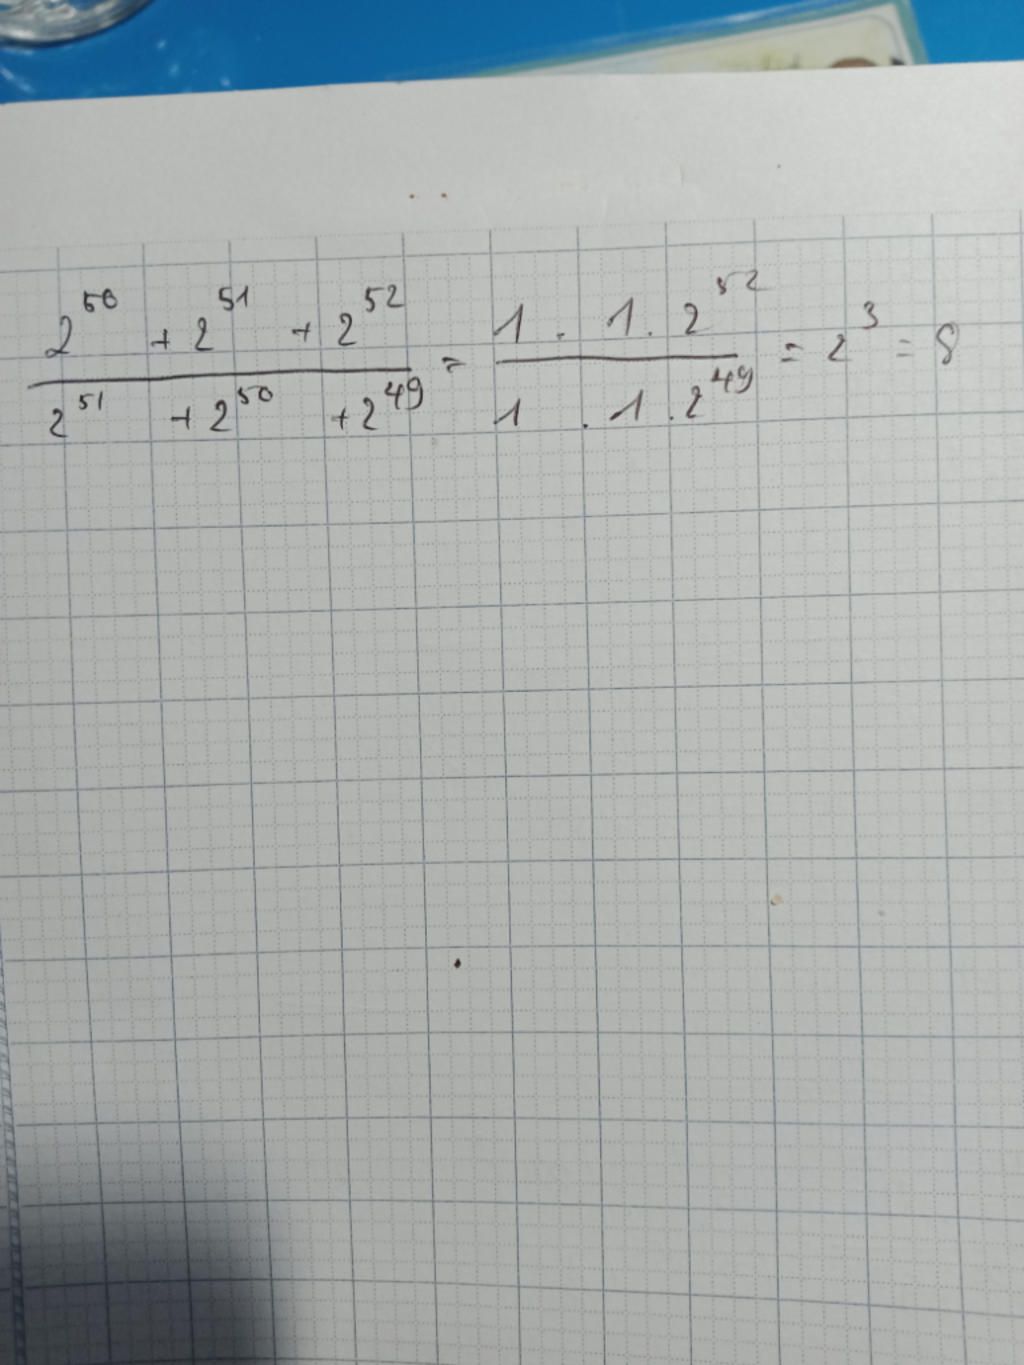 (2^50 + 2^51 + 2^52)/(2^51 + 2^50 + 2^49) = (1 . 1 . 2^52)/(1 . 1 . 2^49) = 2^3 = 8